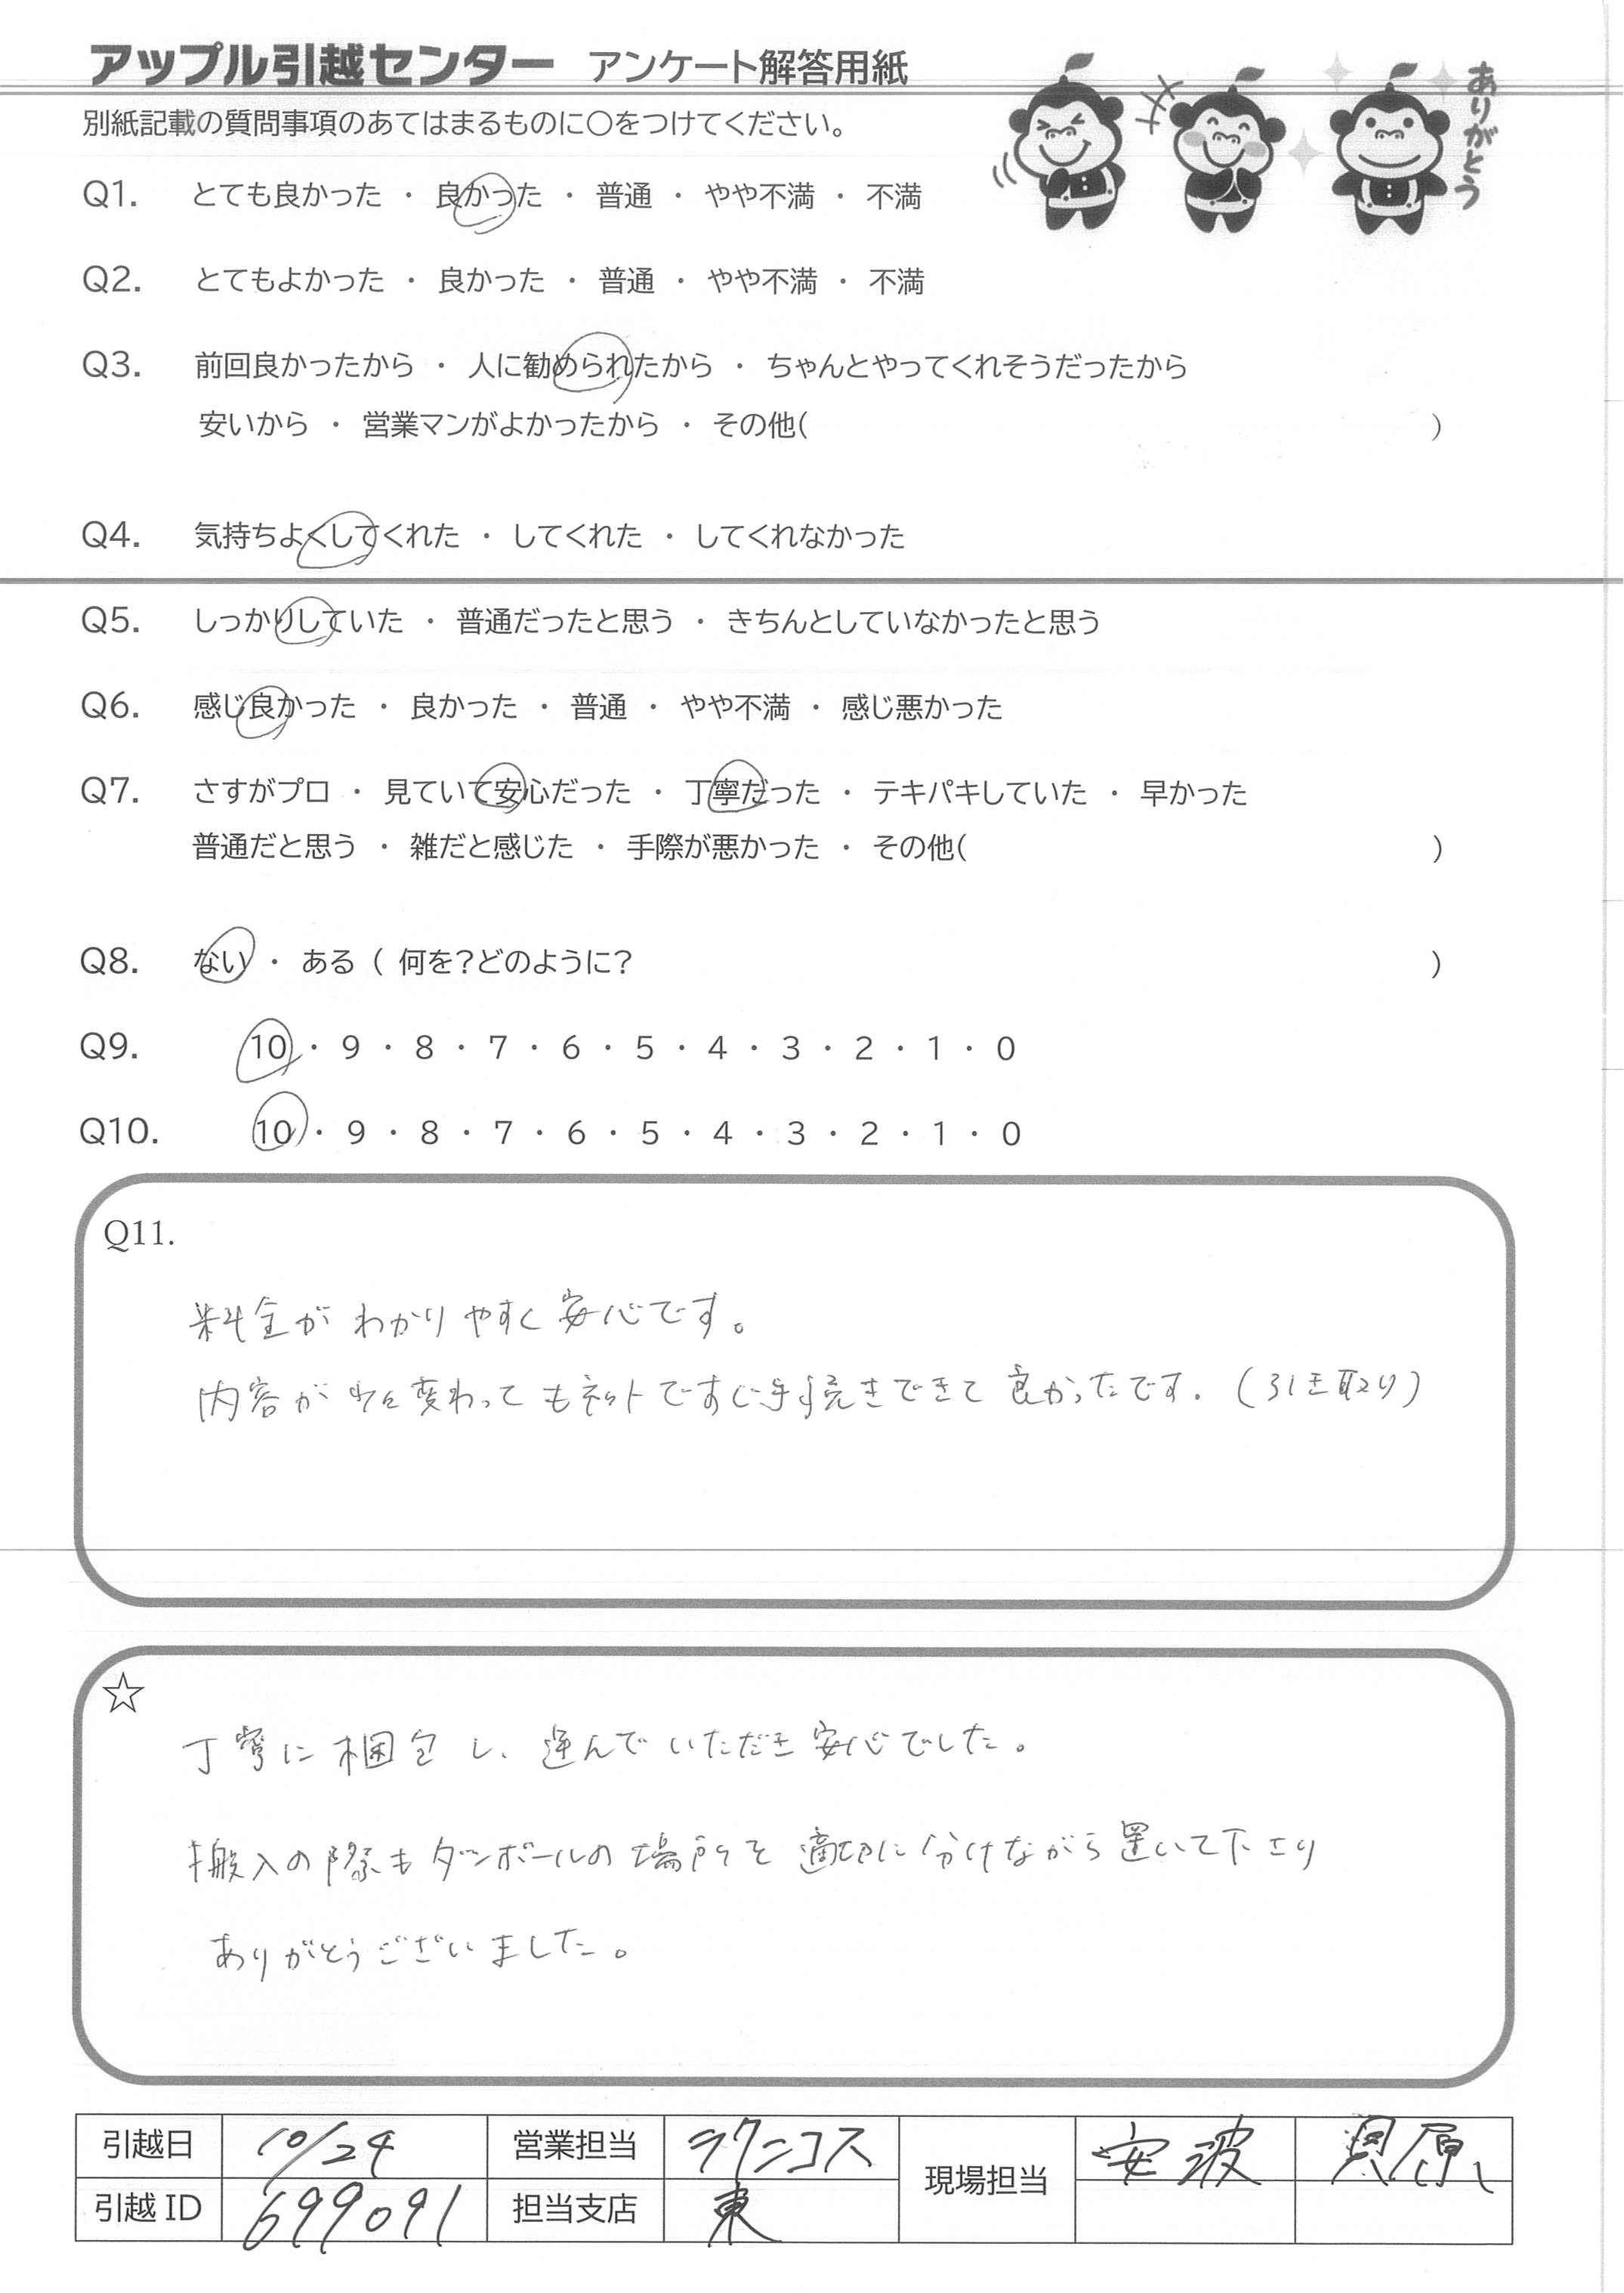 アップル引越センター アンケート解答用紙
ありがとう
別紙記載の質問事項のあてはまるものに〇をつけてください。
Q1. とても良かった ・ 良かった ・ 普通 ・ やや不満 ・ 不満
Q2. とてもよかった ・ 良かった ・ 普通 ・ やや不満 ・ 不満
Q3. 前回良かったから ・ 人に勧められたから ・ ちゃんとやってくれそうだったから
安いから ・ 営業マンがよかったから ・ その他( )
Q4. 気持ちよくしてくれた ・ してくれた ・ してくれなかった
Q5. しっかりしていた ・ 普通だったと思う ・ きちんとしていなかったと思う
Q6. 感じ良かった ・ 良かった ・ 普通 ・ やや不満 ・ 感じ悪かった
Q7. さすがプロ ・ 見ていて安心だった ・ 丁寧だった ・ テキパキしていた ・ 早かった
普通だと思う ・ 雑だと感じた ・ 手際が悪かった ・ その他( )
Q8. ない ・ ある ( 何を?どのように? )
Q9. 10 ・ 9 ・ 8 ・ 7 ・ 6 ・ 5 ・ 4 ・ 3 ・ 2 ・ 1 ・ 0
Q10. 10 ・ 9 ・ 8 ・ 7 ・ 6 ・ 5 ・ 4 ・ 3 ・ 2 ・ 1 ・ 0
Q11.
料金がわかりやすく安心です。
内容が少々変わってもネットですぐ手続きできて良かったです。(引き取り)
☆
丁寧に梱包し、運んでいただき安心でした。
搬入の際もダンボールの場所を適切に分けながら置いて下さり
ありがとうございました。
引越日 10/24 営業担当 ラクニコス 現場担当 安波 貝原
引越ID 699091 担当支店 東